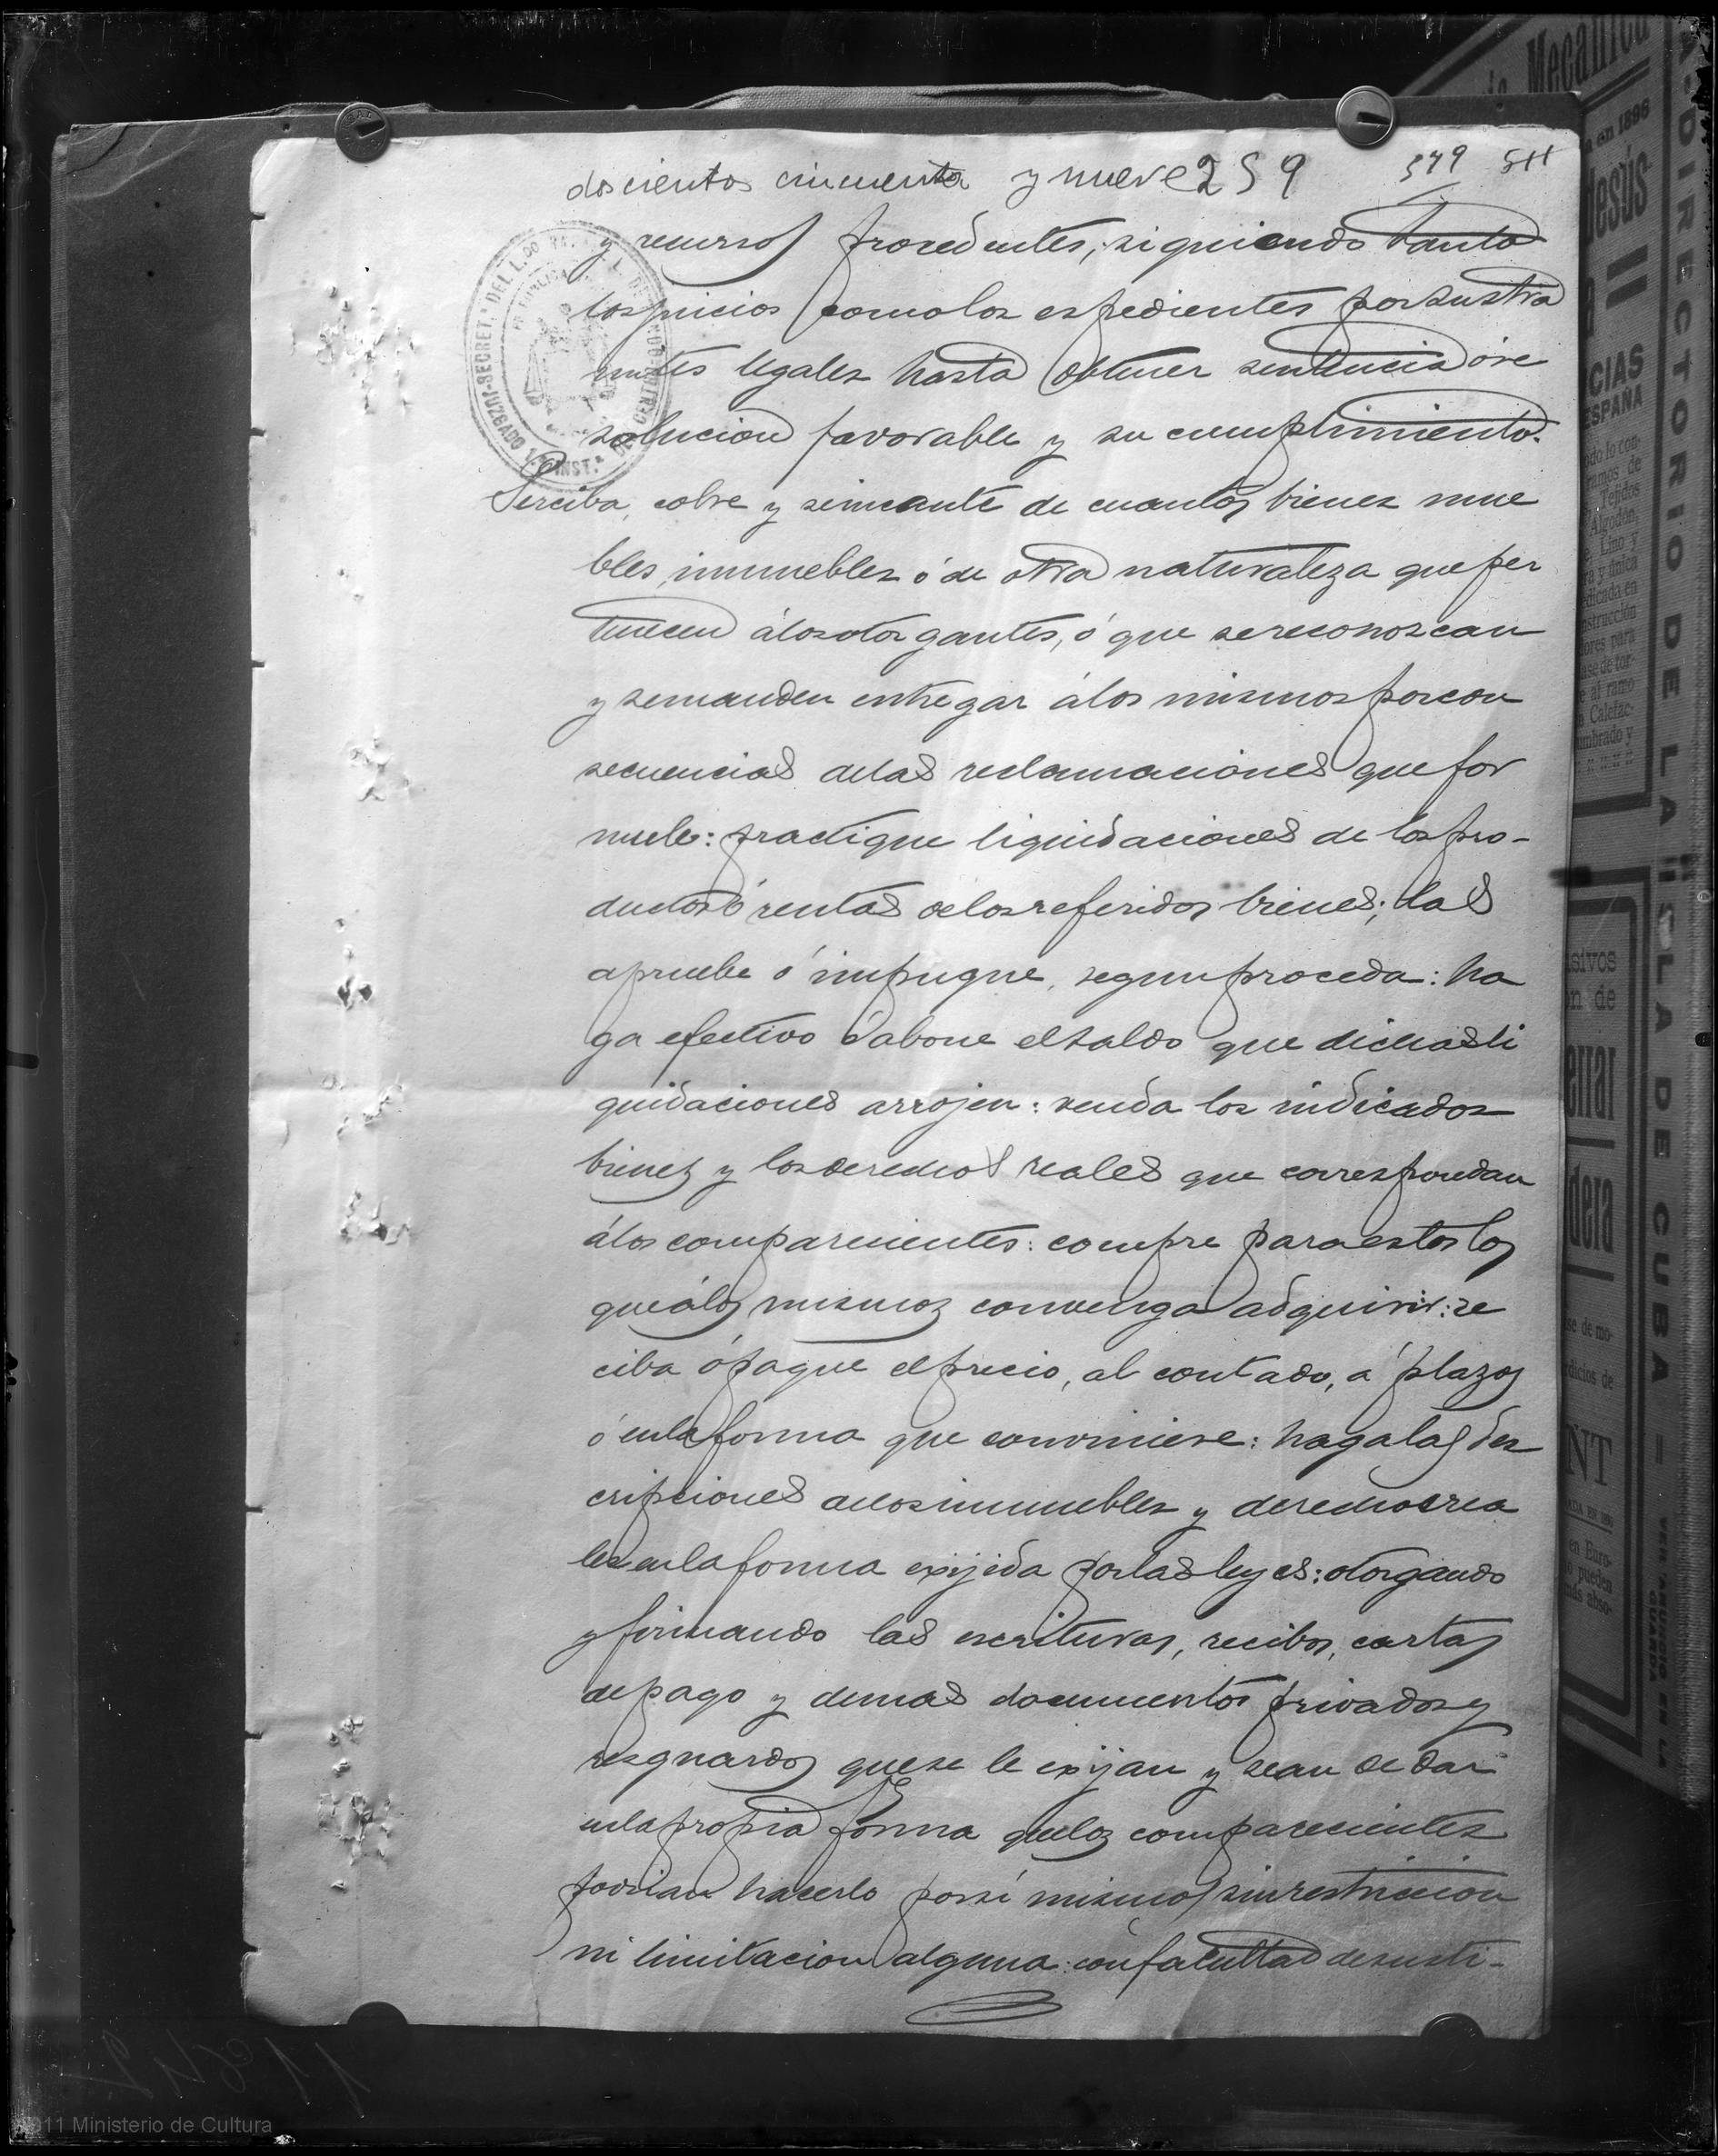 doscientos cincuenta y nueve 259 579 511
y recursos procedentes; siguiendo tanto
los juicios como los espedientes por sus tra
mites legales hasta obtener sentencia ó re
solucion favorable y su cumplimiento.
Perciba, cobre y se incaute de cuantos bienes mue
bles inmuebles ó de otra naturaleza que per
tenecen á los otorgantes, ó que se reconozcan
y se manden entregar á los mismos por con
secuencias de las reclamaciones que for
mule: practique liquidaciones de los pro-
ductos ó rentas de los referidos bienes; las
apruebe ó impugne, segun proceda: ha
ga efectivo ó abone el saldo que dichas li
quidaciones arrojen: venda los indicados
bienes y los derechos reales que correspondan
á los comparecientes: compre para estos los
que á los mismos convenga adquirir: re
ciba ó pague el precio, al contado, á plazos
ó en la forma que conviniere: haga las des
cripciones de los inmuebles y derechos rea
les en la forma exijida por las leyes: otorgando
y firmando las escrituras, recibos, cartas
de pago y demas documentos privados y
resguardos que se le exijan y sean de dar
en la propia forma que los comparecientes
podrian hacerlo por sí mismos sin restriccion
ni limitacion alguna: con facultad de susti-
JUZGADO 1.ª INST.ª DEL CENTRO
SECRET.ª DEL L.DO
Mecánica
a en 1896
Jesús
CIAS
ESPAÑA
odo lo con-
ramos de
Tejidos
Algodón,
Lino y
ra y única
dicada en
nstrucción
ores para
ase de tor-
e al ramo
Calefac-
umbrado y
DIRECTORIO DE LA ISLA DE CUBA
sivos
ón de
errar
dera
se de mo-
dicios de
NT
en Euro-
o pueden
más abso-
11842
2011 Ministerio de Cultura